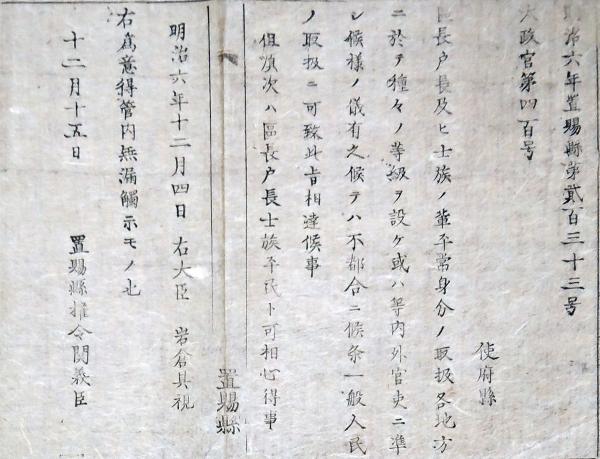 明治六年置賜縣第貳百三十三号
太政官第四百号
使府縣
區長戸長及ヒ士族ノ輩平常身分ノ取扱各地方
ニ於テ種々ノ等級ヲ設ケ或ハ等内外官吏ニ準
シ候様ノ儀有之候テハ不都合ニ候条一般人民
ノ取扱ニ可致此旨相達候事
但順次ハ區長戸長士族平民ト可相心得事
置賜縣
明治六年十二月四日 右大臣 岩倉具視
右為意得管内無漏觸示モノ也
十二月十五日
置賜縣権令関義臣